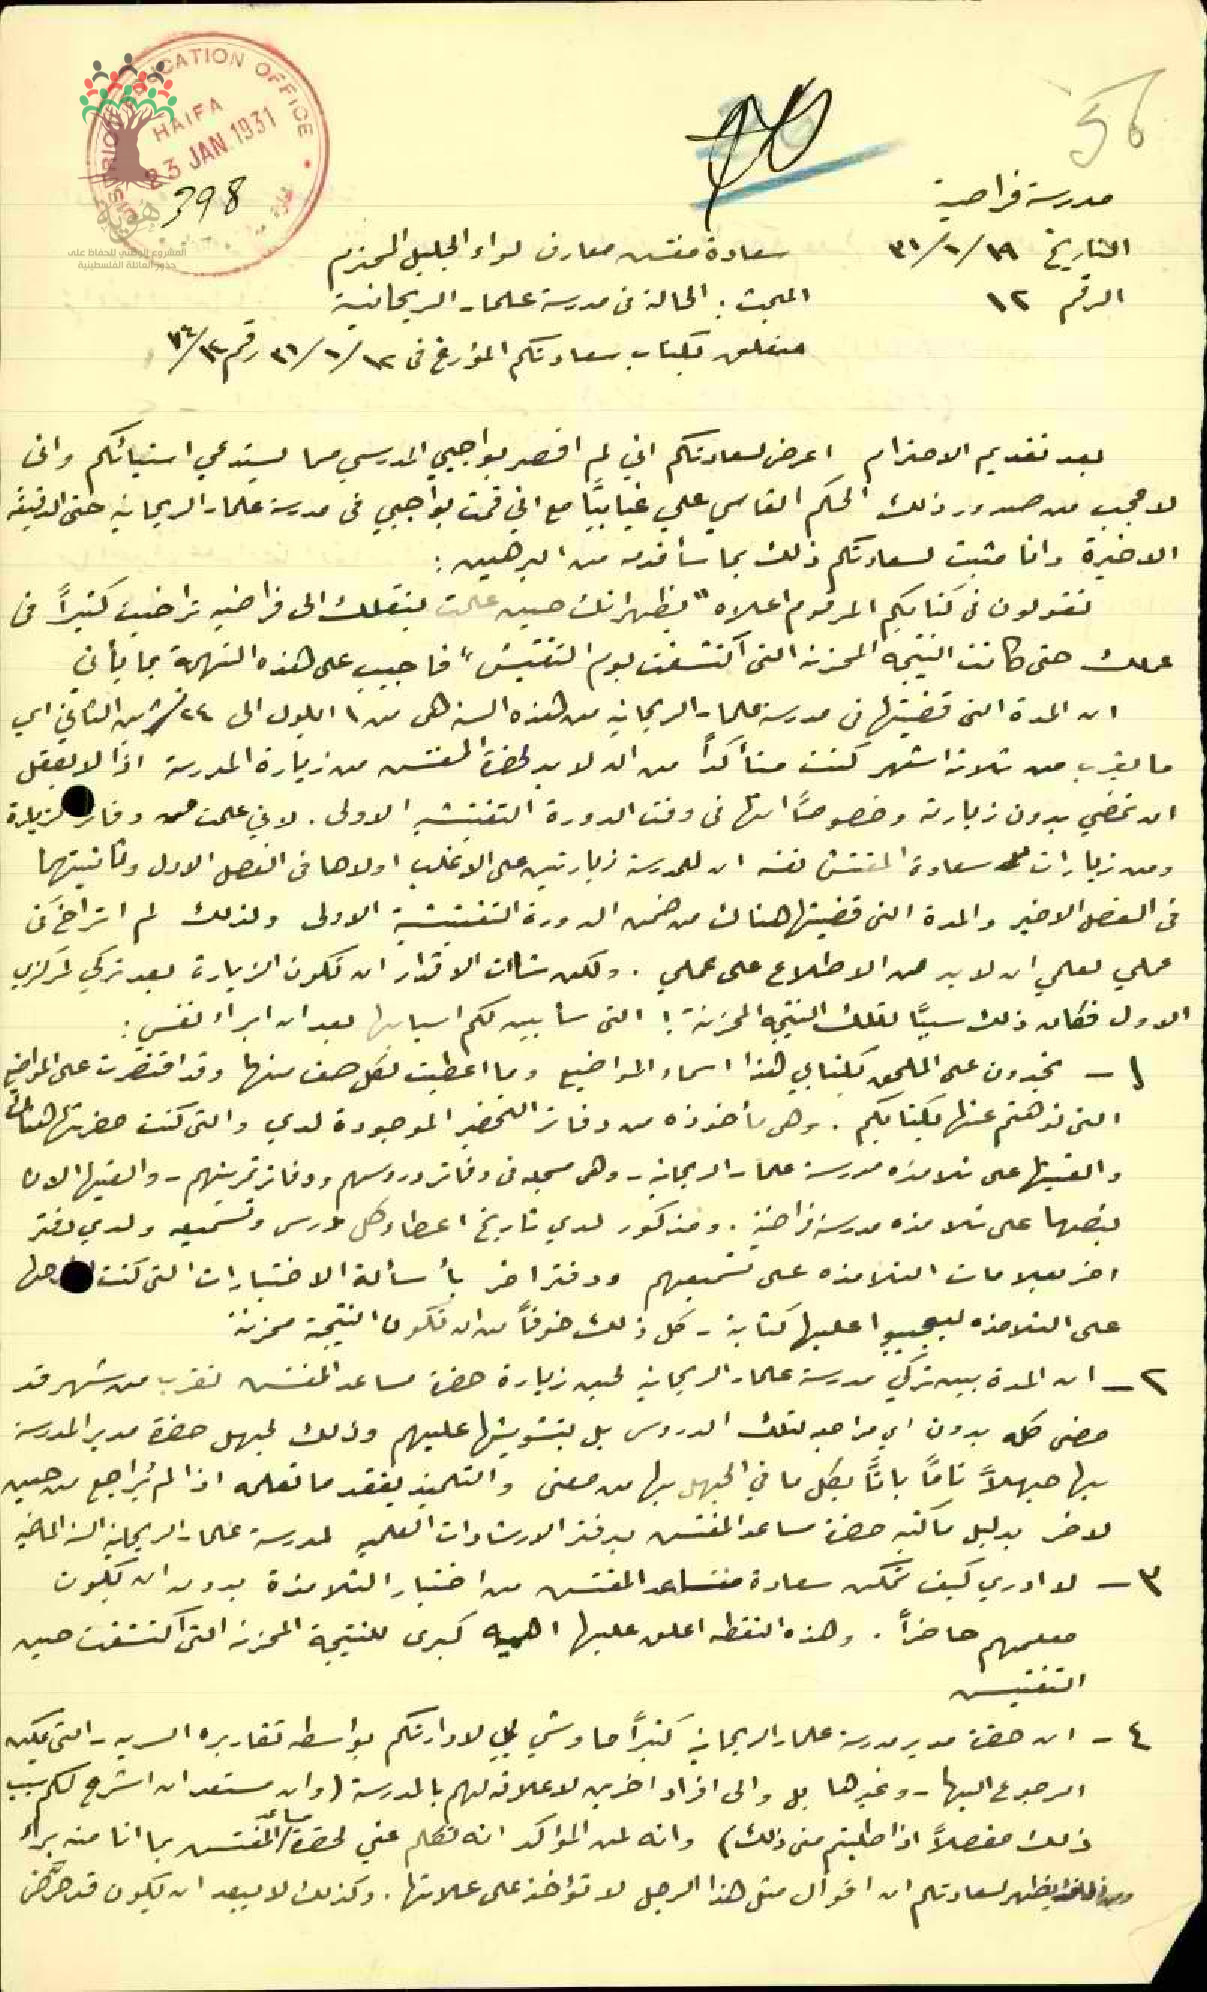 DISTRICT EDUCATION OFFICE
HAIFA
23 JAN 1931
398
56
هوية
المشروع الوطني للحفاظ على
جذور العائلة الفلسطينية
مدرسة فراضية
التاريخ ١٩/١/٣١
الرقم ١٢
سعادة مفتش معارف لواء الجليل المحترم
المبحث : الحالة في مدرسة علما - الريحانية
متعلق بكتاب سعادتكم المؤرخ في ١٢/١/٣١ رقم
بعد تقديم الاحترام اعرض لسعادتكم اني لم اقصر بواجبي المدرسي مما يستدعي استيائكم واني
لاعجب من صدور ذلك الحكم القاسي علي غيابيًا مع اني قمت بواجبي في مدرسة علما - الريحانية حتى الدقيقة
الاخيرة وانا مثبت لسعادتكم ذلك بما سأقدمه من البرهين :
تقولون في كتابكم المرقوم اعلاه "يظهر انك حين علمت بنقلك الى فراضيه تراخيت كثيرًا في
عملك حتى كانت النتيجة المحزنة التي اكتشفت يوم التفتيش" فاجيب على هذه التهمة بما يأتي
ان المدة التي قضيتها في مدرسة علما - الريحانية من هذه السنة هي من ١ ايلول الى ٢٤ تشرين الثاني اي
ما يقرب من ثلاثة اشهر كنت متأكدًا من انه لا بد لحضرة المفتش من زيارة المدرسة اذ لا يعقل
ان تمضي بدون زيارته وخصوصًا انها في وقت الدورة التفتيشية الاولى . لاني علمت من دفاتر الزيارة
ومن زيارات سعادة المفتش نفسه ان للمدرسة زيارتين على الاغلب اولاها في الفصل الاول وثانيتهما
في الفصل الاخير والمدة التي قضيتها هناك من ضمن الدورة التفتيشية الاولى ولذلك لم اتراخ في
عملي لعلمي ان لا بد من الاطلاع على عملي . ولكن شاءت الاقدار ان تكون الزيارة بعد تركي لمركزي
الاول فكان ذلك سببًا لتلك النتيجة المحزنة ! التي سأبين لكم اسبابها بعد ان ابرأ نفسي :
١ - تجدون على الملحق بكتابي هذا اسماء المواضيع وما اعطيت لكل صف منها وقد اقتصرت على المواضيع
التي نوهتم عنها بكتابكم . وهي مأخوذه من دفاتر التحضير الموجودة لدي والتي كنت حضرتها هناك
والقيتها على تلامذة مدرسة علما - الريحانية - وهي مسجله في دفاتر دروسهم ودفاتر تمرينهم - والقيها الان
بنصها على تلامذه مدرسة فراضية . ومذكور لدي تاريخ اعطاء كل درس وتسميعه ولدي دفتر
اخر بعلامات التلامذه على تسميعهم ودفتر اخر بأسألة الاختبارات التي كنت
على التلامذه ليجيبوا عليها كتابة - كل ذلك خوفًا من ان تكون النتيجة محزنة
٢ - ان المدة بين تركي مدرسة علما - الريحانية لحين زيارة حضرة مساعد المفتش تقرب من شهر قد
مضى كله بدون اي مراجعه لتلك الدروس بل بتشويشها عليهم وذلك لجهل حضرة مدير المدرسة
بها جهلاً تامًا باتًا بكل ما في الجهل بها من معنى والتلميذ يفقد ما تعلمه اذا لم يُراجع من حين
لاخر بدليل ما كتبه حضرة مساعد المفتش بدفتر الارشادات العلمية لمدرسة علما - الريحانية السنة الماضيه
٣ - لا ادري كيف تمكن سعادة مساعد المفتش من اختبار التلامذة بدون ان يكون
معلمهم حاضرًا . وهذه النقطه اعلق عليها اهمية كبرى للنتيجة المحزنة التي اكتشفت حين
التفتيش
٤ - ان حضرة مدير مدرسة علما - الريحانية كثيرًا ما وشي بي لادارتكم بواسطه تقاريره السريه - التي يمكن
الرجوع اليها - وغيرها بل والى افراد اخرين لا علاقه لهم بالمدرسة (وان مستعد ان اشرح لكم سبب
ذلك مفصلاً اذا طلبتم مني ذلك) وانه لمن المؤكد انه تكلم عني لحضرة مساعد المفتش بما انا منه براء
يظهر لسعادتكم ان اقوال مثل هذا الرجل لا تؤاخذ على علاتها . وكذلك لا يبعد ان يكون قد حرّض